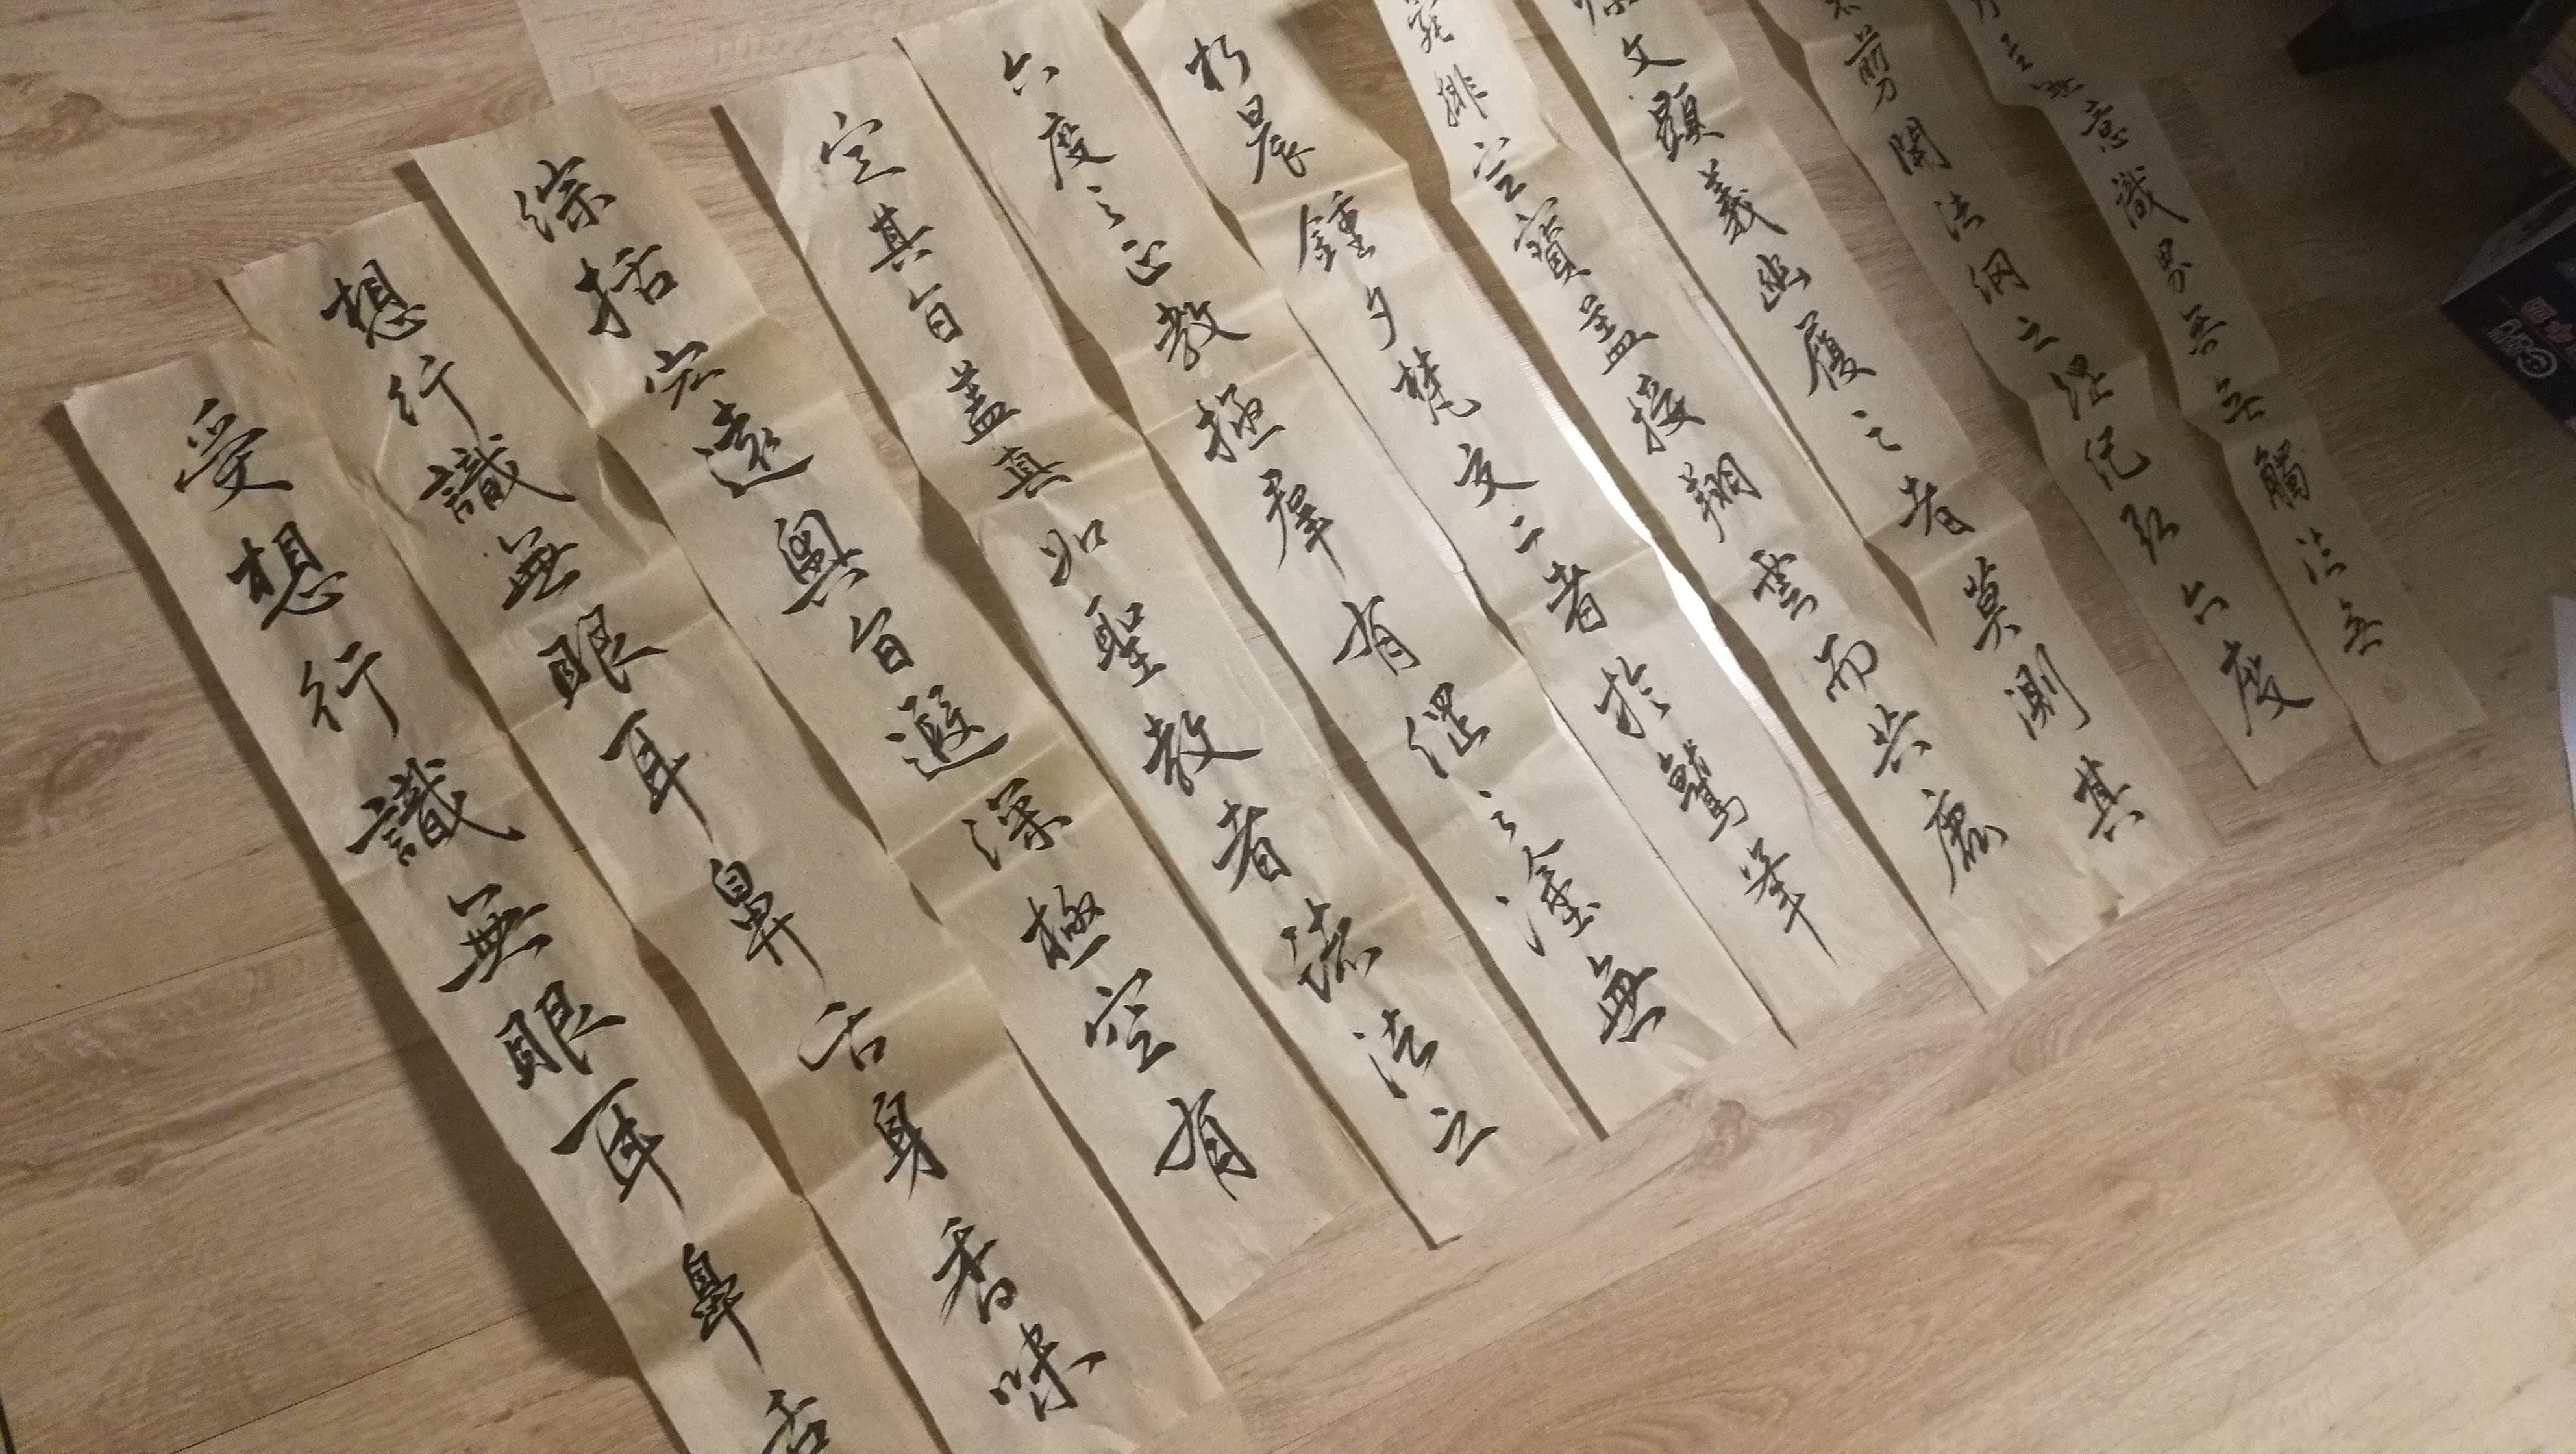 無意識界無無觸法無
剪開法網之經紀弘六度
文顯義幽履之者莫測其
排空寶蓋接翔雲而共飛
朽晨鍾夕梵交二音於鷲峯
六度之正教拯羣有之塗無
定其旨蓋真如聖教者諸法之
綜括宏遠奧旨遐深極空有
想行識無眼耳鼻舌身香味
受想行識無眼耳鼻舌